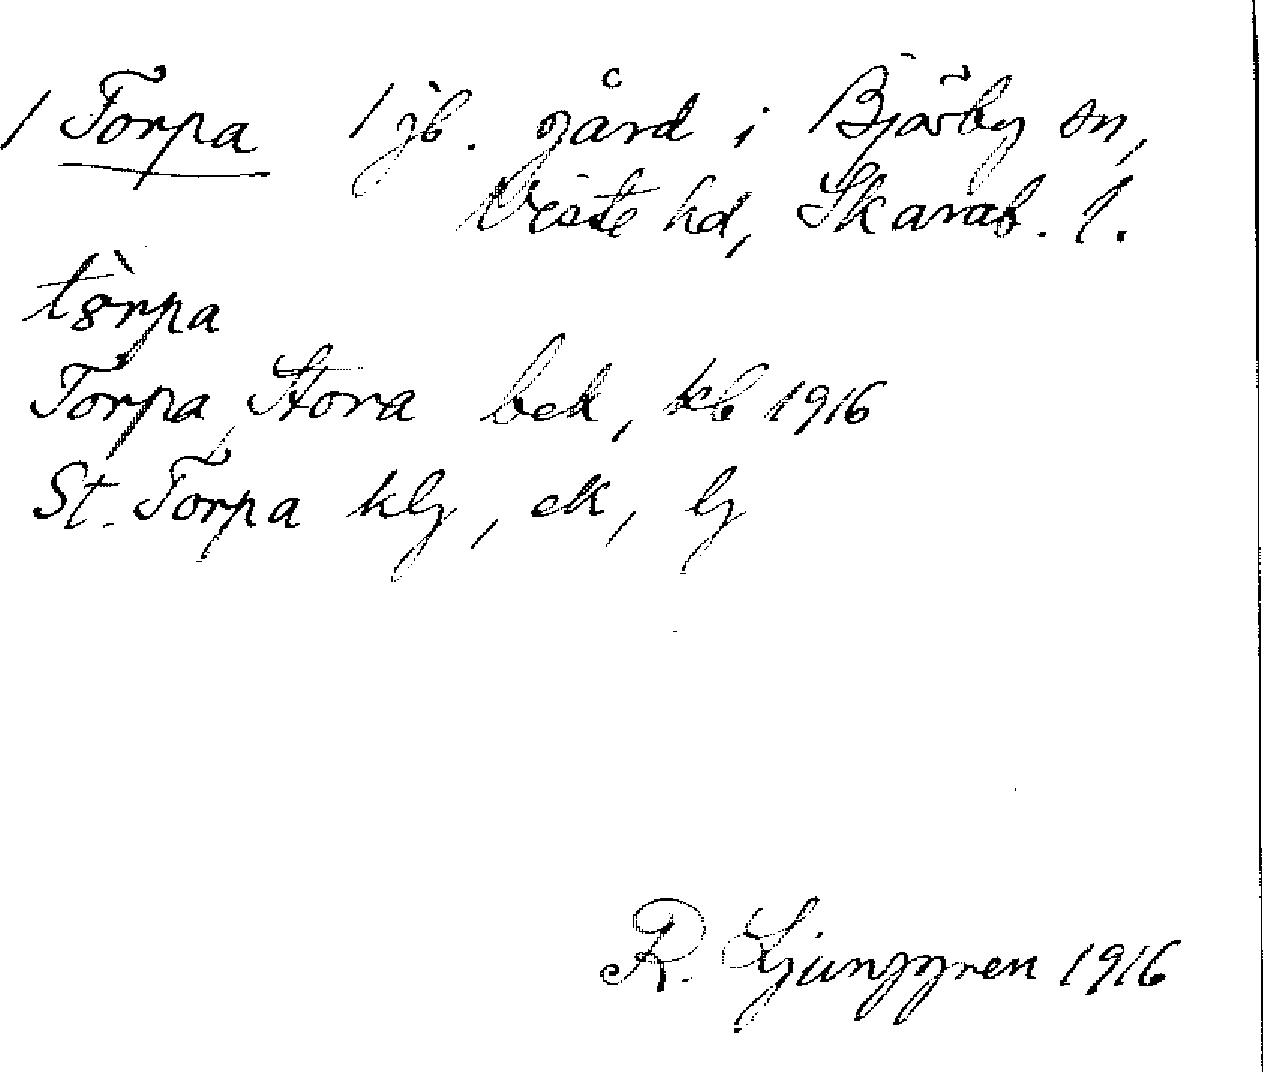 1 Torpa 1 jb. gård i Bjärby sn,
Viste hd, Skarab. l.
tȯ̀rpa
Torpa, Stora bek, kb 1916
St. Torpa klj, ek, lj
R. Ljunggren 1916